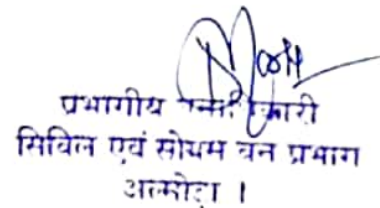 प्रभागीय वनाधिकारी
सिविल एवं सोयम वन प्रभाग
अल्मोड़ा ।